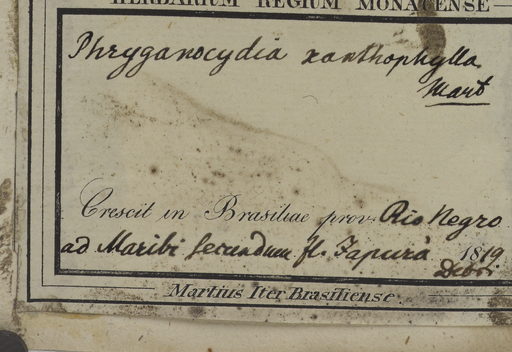 HERBARIUM REGIUM MONACENSE
Phryganocydia xanthophylla
Mart
Crescit in Brasiliae prov. Rio Negro
ad Maribi secundum fl. Japurá 1819
Debri
Martius Iter Brasiliense.